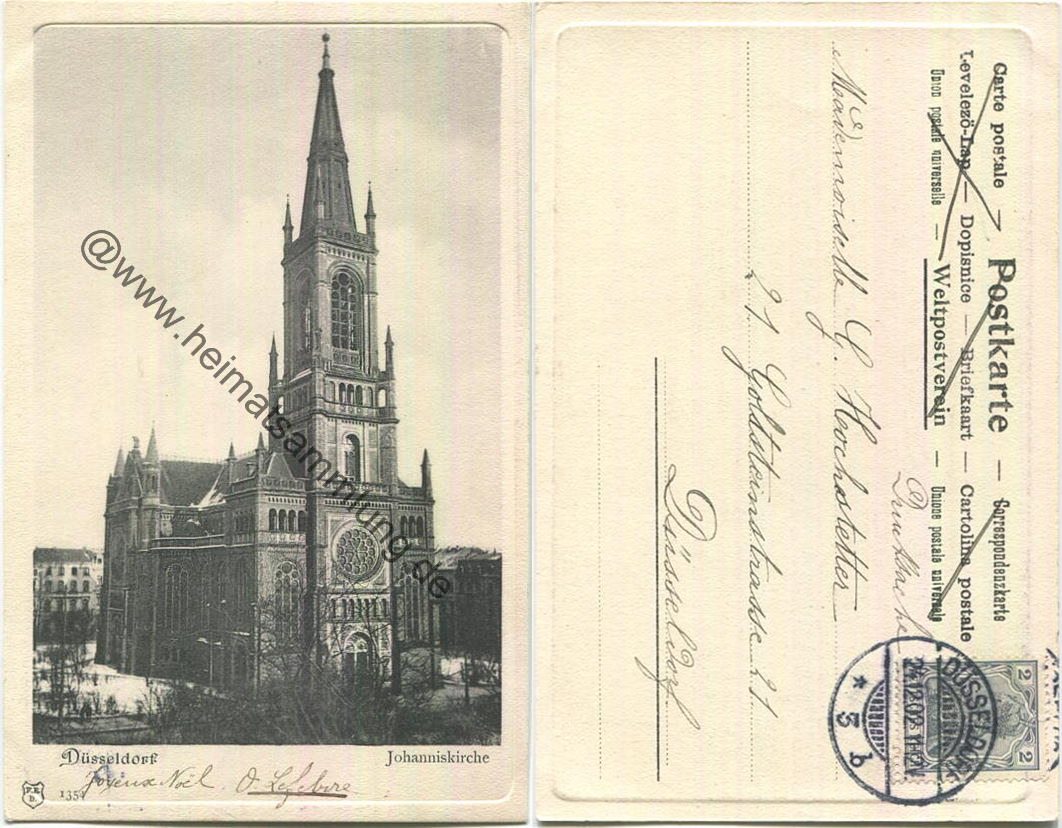 @www.heimatsammlung.de
Düsseldorf Johanniskirche
Joyeux Noël O. Lefebvre
1354
Carte postale — Postkarte — Correspondenzkarte
Levelező-Lap — Dopisnice — Briefkaart — Cartolina postale
Union postale universelle — Weltpostverein — Unione postale universale
Drucksache
Mademoiselle G. Hochstetter
21 Goldsteinstrasse 21
Düsseldorf
DÜSSELDORF
24.12.02.11-12V.
* 5 b
2 2